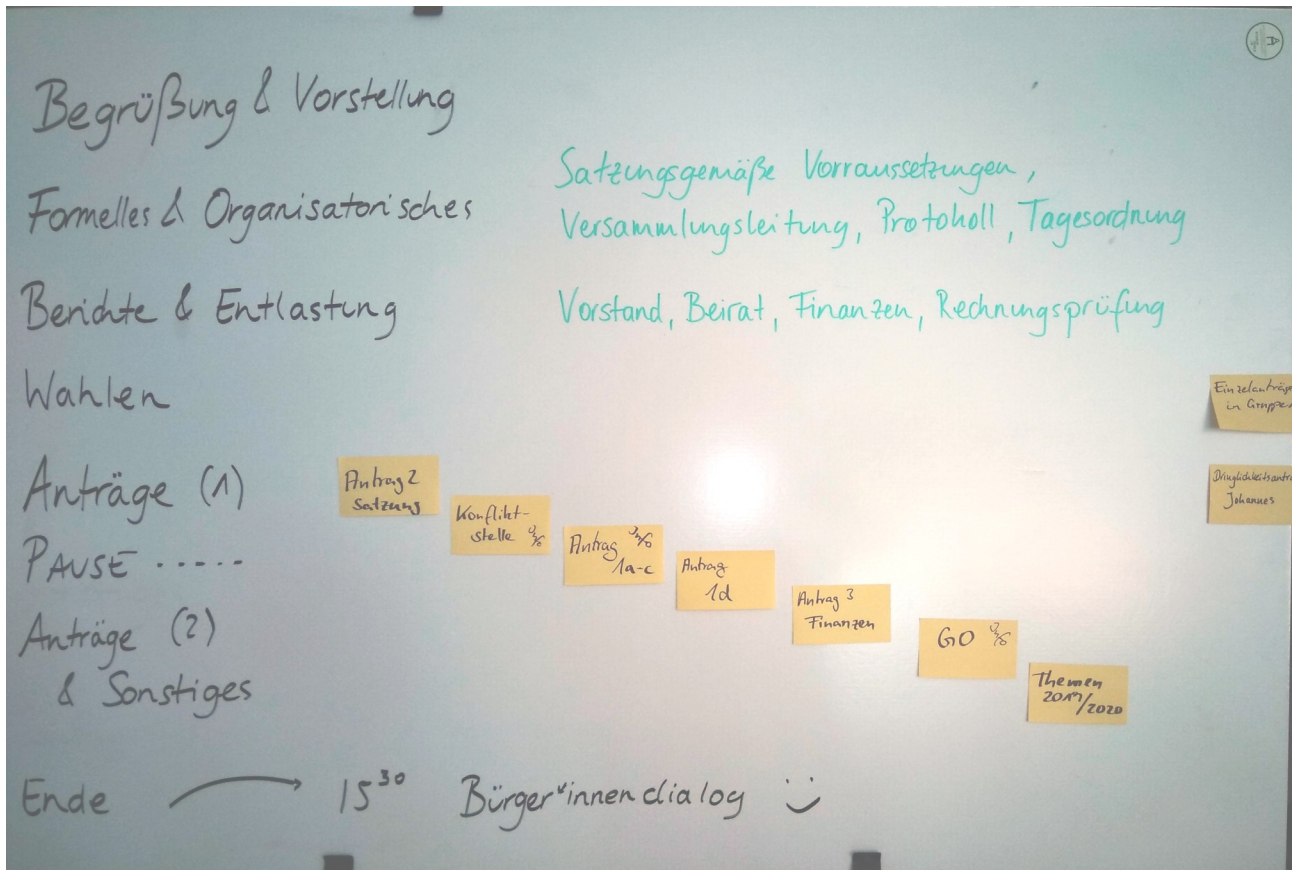 Begrüßung & Vorstellung
Formelles & Organisatorisches
Satzungsgemäße Vorraussetzungen,
Versammlungsleitung, Protokoll, Tagesordnung
Berichte & Entlastung
Vorstand, Beirat, Finanzen, Rechnungsprüfung
Wahlen
Anträge (1)
PAUSE .....
Anträge (2)
& Sonstiges
Antrag 2
Satzung
Konflikt-
stelle
Antrag
1a-c
Antrag
1d
Antrag 3
Finanzen
GO
Themen
2019/2020
Einzelanträge
in Gruppen
Dringlichkeitsantra
Johannes
Ende → 15 30 Bürger*innendialog :)